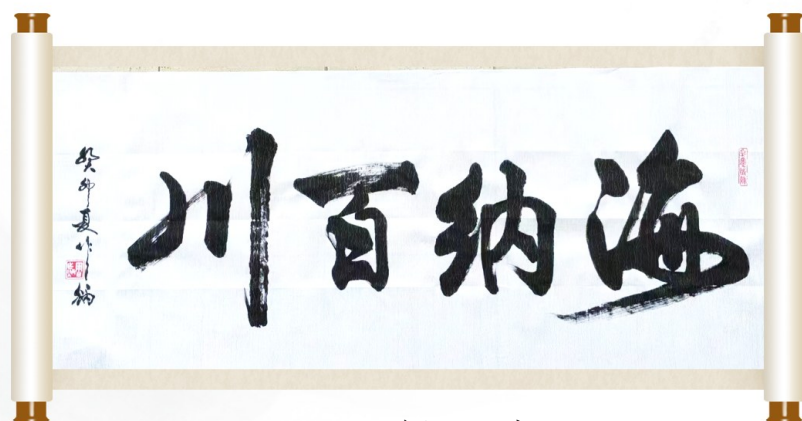 海纳百川
癸卯夏